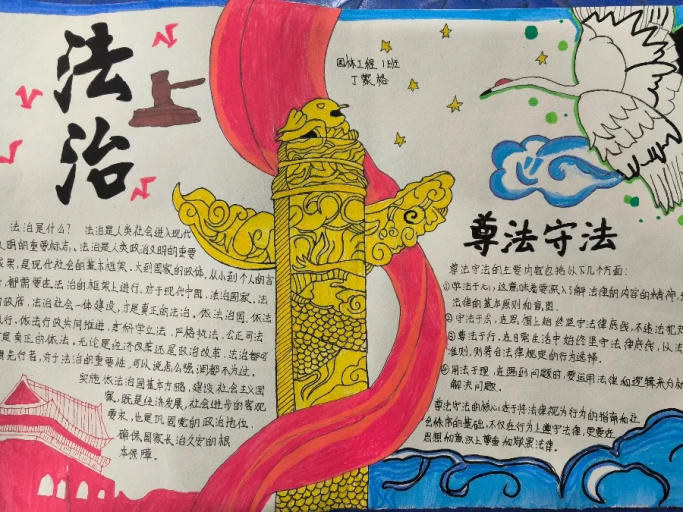 法治
园林工程1班
丁
法治是什么? 法治是人类社会进入现代
文明的重要标志。法治是人类政治文明的重要
成果,是现代社会的基本框架。大到国家的政体,从小到个人的言
都需要在法治的框架上进行。对于现代中国,法治国家、法
治政府、法治社会一体建设,才是真正的法治。依法治国、依法
执行、依法行政共同推进,
严格执法,公正司法
是真正的依法。无论是经济改革还是政治改革,法治都可
先行者,对于法治的重要性,可以说怎么强调都不为过。
实施依法治国基本方略,建设社会主义国
家,既是经济发展、社会进步的客观
要求,也是巩固党的政治地位、
确保国家长治久安的根
本保障。
尊法守法
尊法守法的主要内容包括以下几个方面:
①学法于心,这意味着要深入了解法律的内容的精神,
法律的基本原则和
②守法于点,在思想上始终坚守法律底线,不违法犯
③尊法于行,在日常生活中始终坚守法律底线,以法
准则,则符合法律规定的行为选择。
④用法于理,在遇到问题时,要运用法律和逻辑来
解决问题。
尊法守法的核心在于将法律视为行为的指南和社
会秩序的基础,不仅在行为上遵守法律,更要在
思想和意识上尊重和
法律。